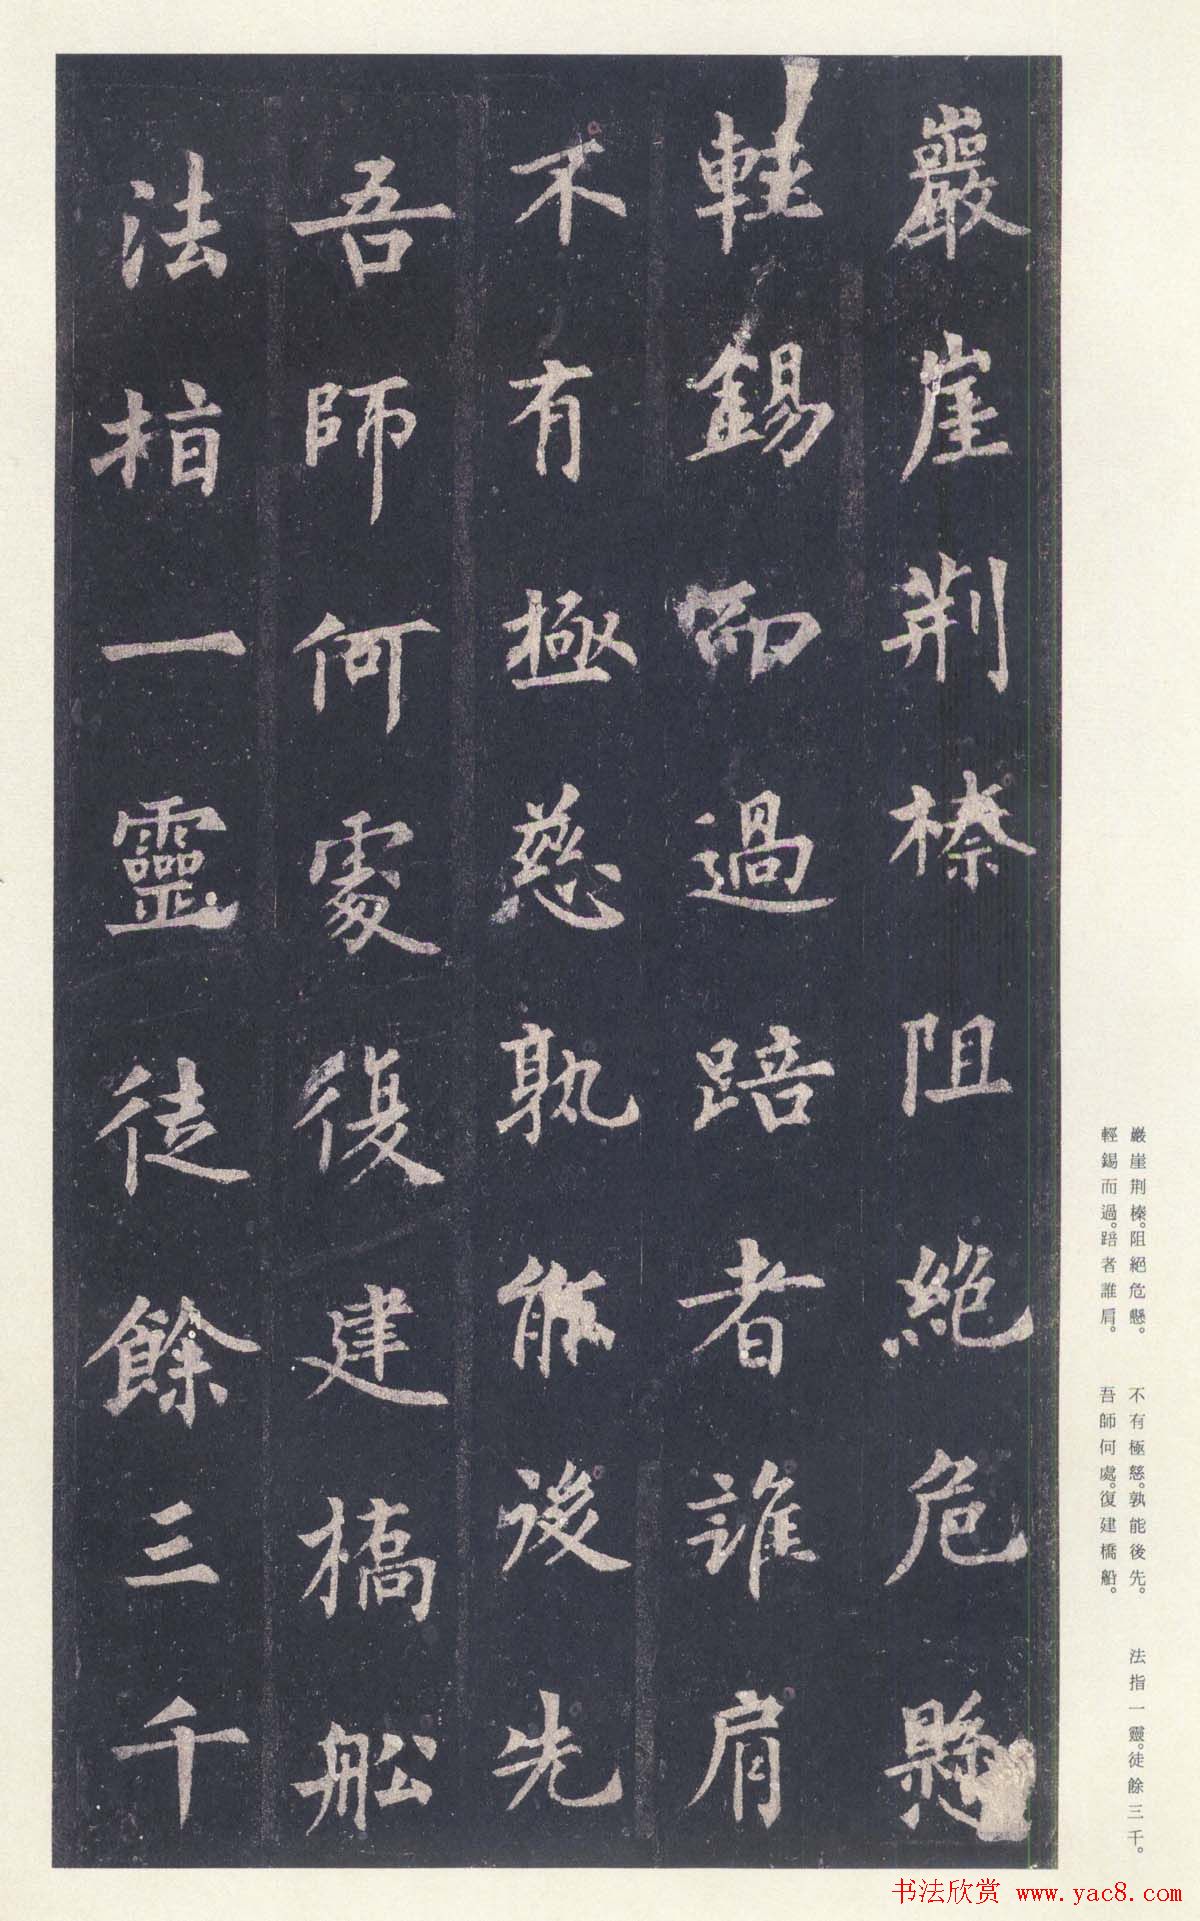 巖崖荆榛阻絶危懸
輕錫而過踣者誰肩
不有極慈孰能後先
吾師何處復建橋船
法指一靈徒餘三千
巖崖荆榛。阻絕危懸。
輕錫而過。踣者誰肩。
不有極慈。孰能後先。
吾師何處。復建橋船。
法指一靈。徒餘三千。
书法欣赏 www.yac8.com